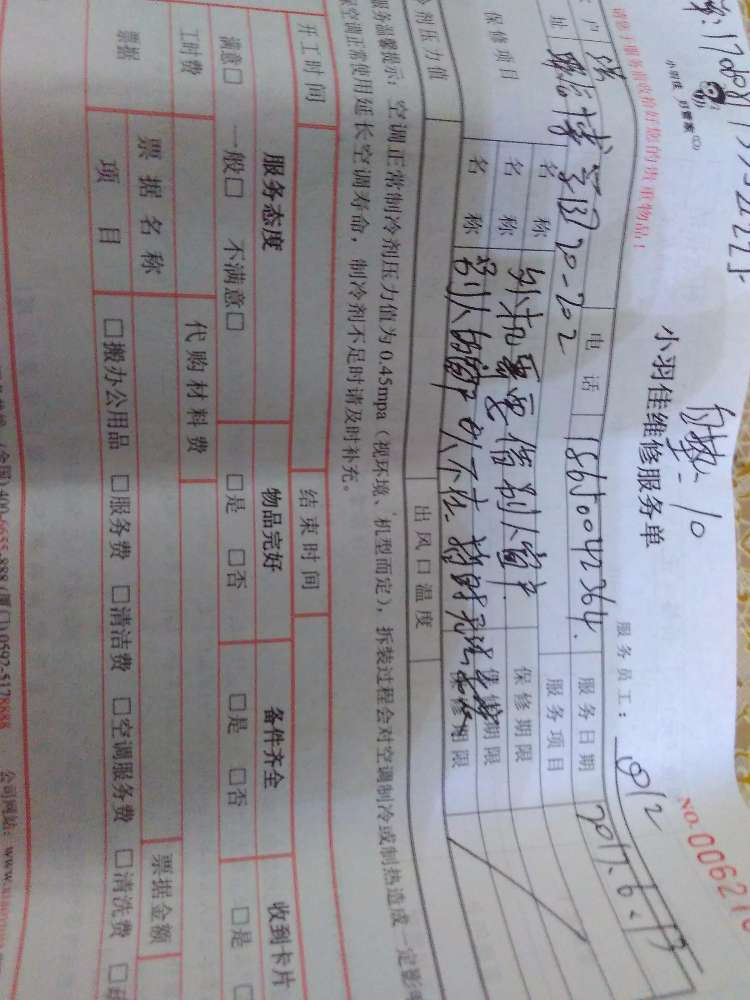 小羽佳 归管家
请您于服务前收拾好您的贵重物品！
自垫-10
小羽佳维修服务单
NO.00621
服务员工： 812
户
址 联信博学园20-202
电话 18650042364
服务日期 2017.6.13
服务项目
保修项目
名称 外机需要借别人窗户
保修期限
名称 别人的窗户 暂时无法
保修期限
剂压力值
出风口温度
服务温馨提示：空调正常制冷剂压力值为0.45mpa（视环境、机型而定），拆装过程会对空调制冷或制热造成一定影
空调正常使用延长空调寿命，制冷剂不足时请及时补充。
开工时间
结束时间
服务态度
物品完好
备件齐全
收到卡片
满意□ 一般□ 不满意□
□是 □否
□是 □否
□是
工时费
代购材料费
票据
票据名称
票据金额
项目
□搬办公用品 □服务费 □清洁费 □空调服务费 □清洗费
(全国)400-6655-888 (厦门)0592-5178888 公司网站：www.